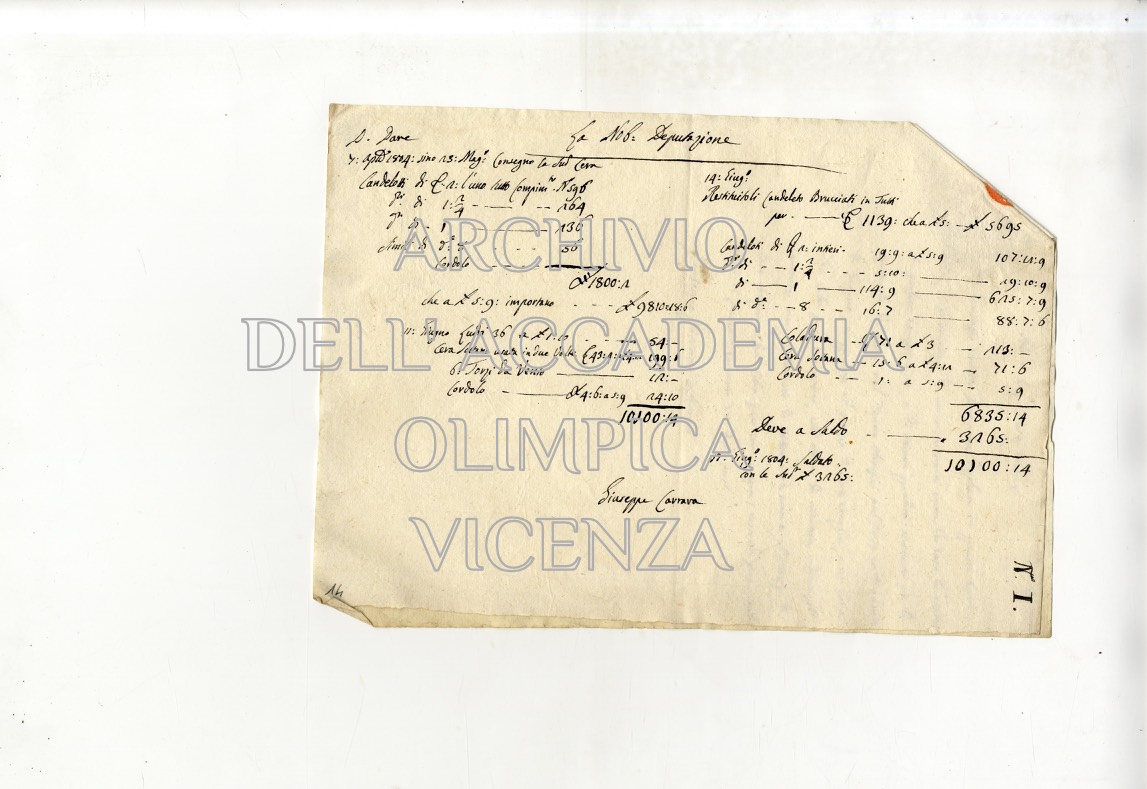 D. Dare La Nob: Deputazione
7: Aple 1804: sino 23: Mago Consegno la Sud Cera
Candelotti di 2: l'uno tutto No 596
di 1: 2/4 264
di 1 236
di 8 56
Cordolo
1800:2
che a £ 5:9: importano £ 9810:18:6
11: Giugno 36 a £ 1:10 54:-
Cera usata in due Volte 199:6
6: Torzi da Vento 12:-
Cordolo 4:6: a 5:9 24:10
10100:14
14: Giugo
Restituitoli Candeloto Brucciati in Tutti
per 1139: che a £ 5:- £ 5695
Candeloti di 2: intieri 19:9: a £ 5:9 107:11:9
di 1: 2/4 5:10: 29:10:9
di 1 114:9 625:7:9
di 8 16:7 88:7:6
Coladura 71: a £ 3 213:-
Cera 15:6 a £ 4:12 71:6
Cordolo 1: a 5:9 5:9
6835:14
Deve a Saldo 3265:
10100:14
Giugo 1804: Saldato
con le Sude £ 3265:
Giuseppe Carrara
14
N. I.
ARCHIVIO
DELL'ACCADEMIA
OLIMPICA
VICENZA